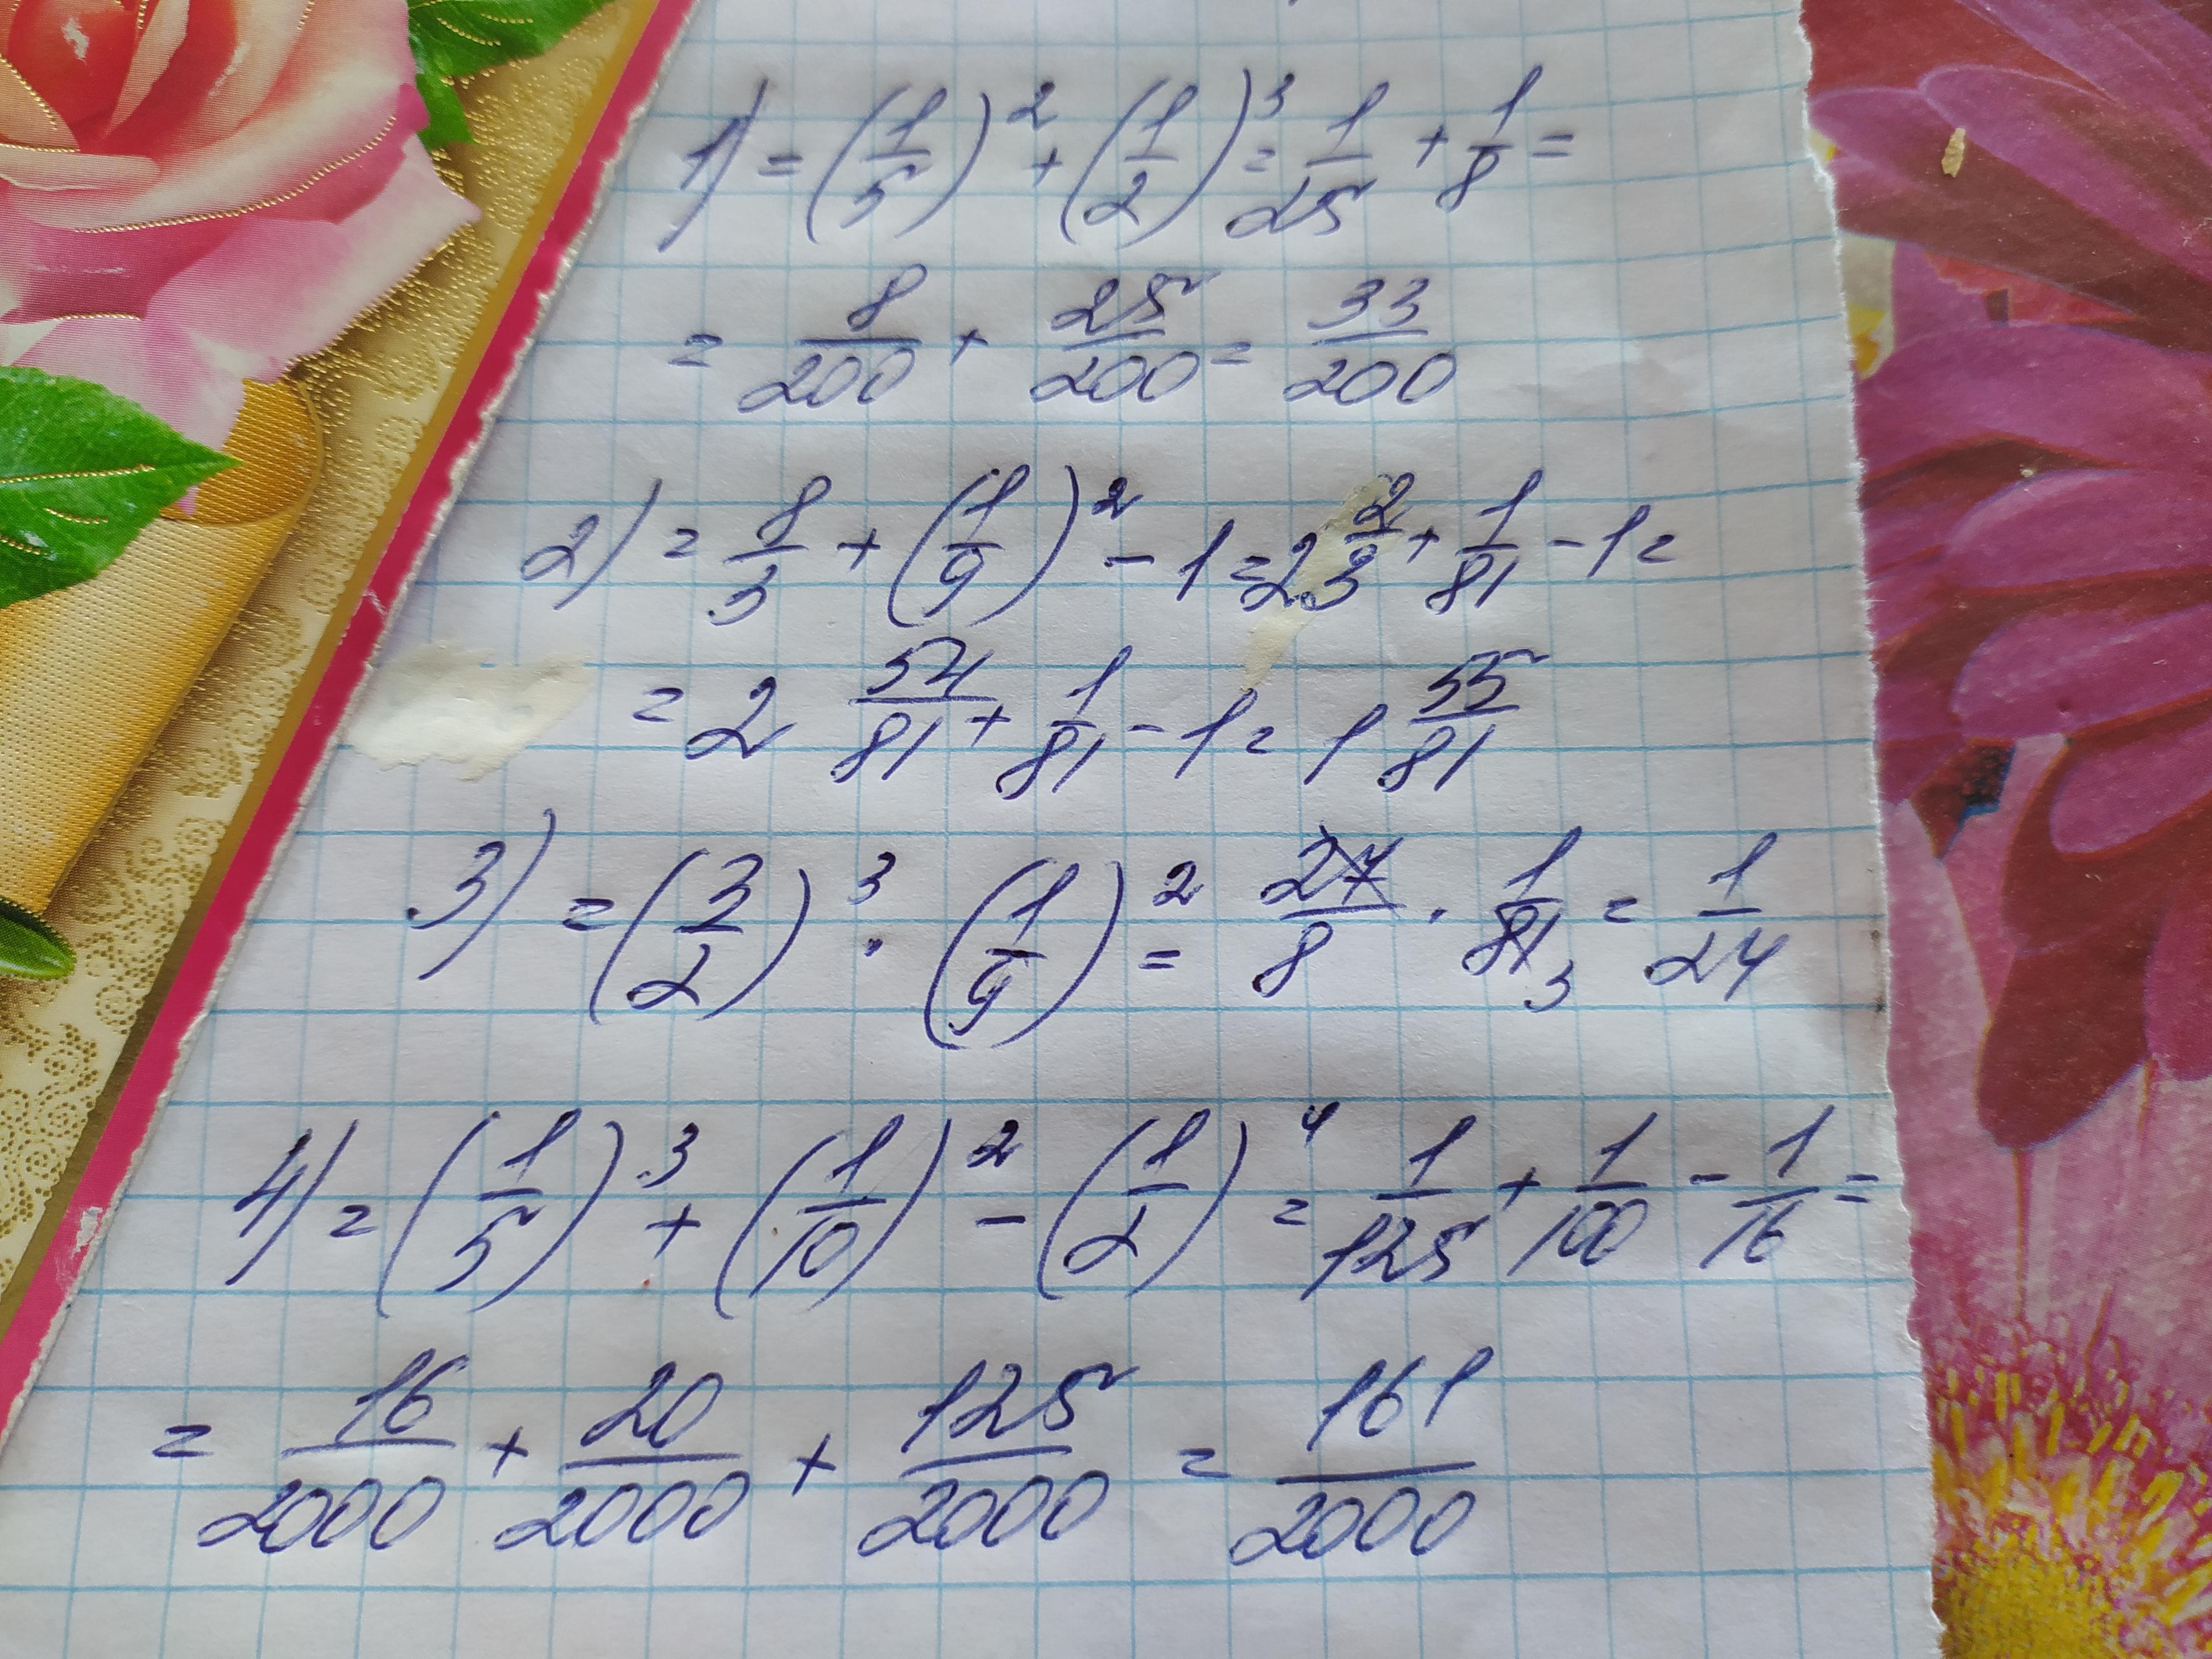 1) = (1/5)² + (1/2)³ = 1/25 + 1/8 =
= 8/200 + 25/200 = 33/200
2) = 8/3 + (1/9)² - 1 = 2 2/3 + 1/81 - 1 =
= 2 54/81 + 1/81 - 1 = 1 55/81
3) = (3/2)³ · (1/9)² = 27/8 · 1/81 3 = 1/24
4) = (1/5)³ + (1/10)² - (1/2)⁴ = 1/125 + 1/100 - 1/16 =
= 16/2000 + 20/2000 + 125/2000 = 161/2000